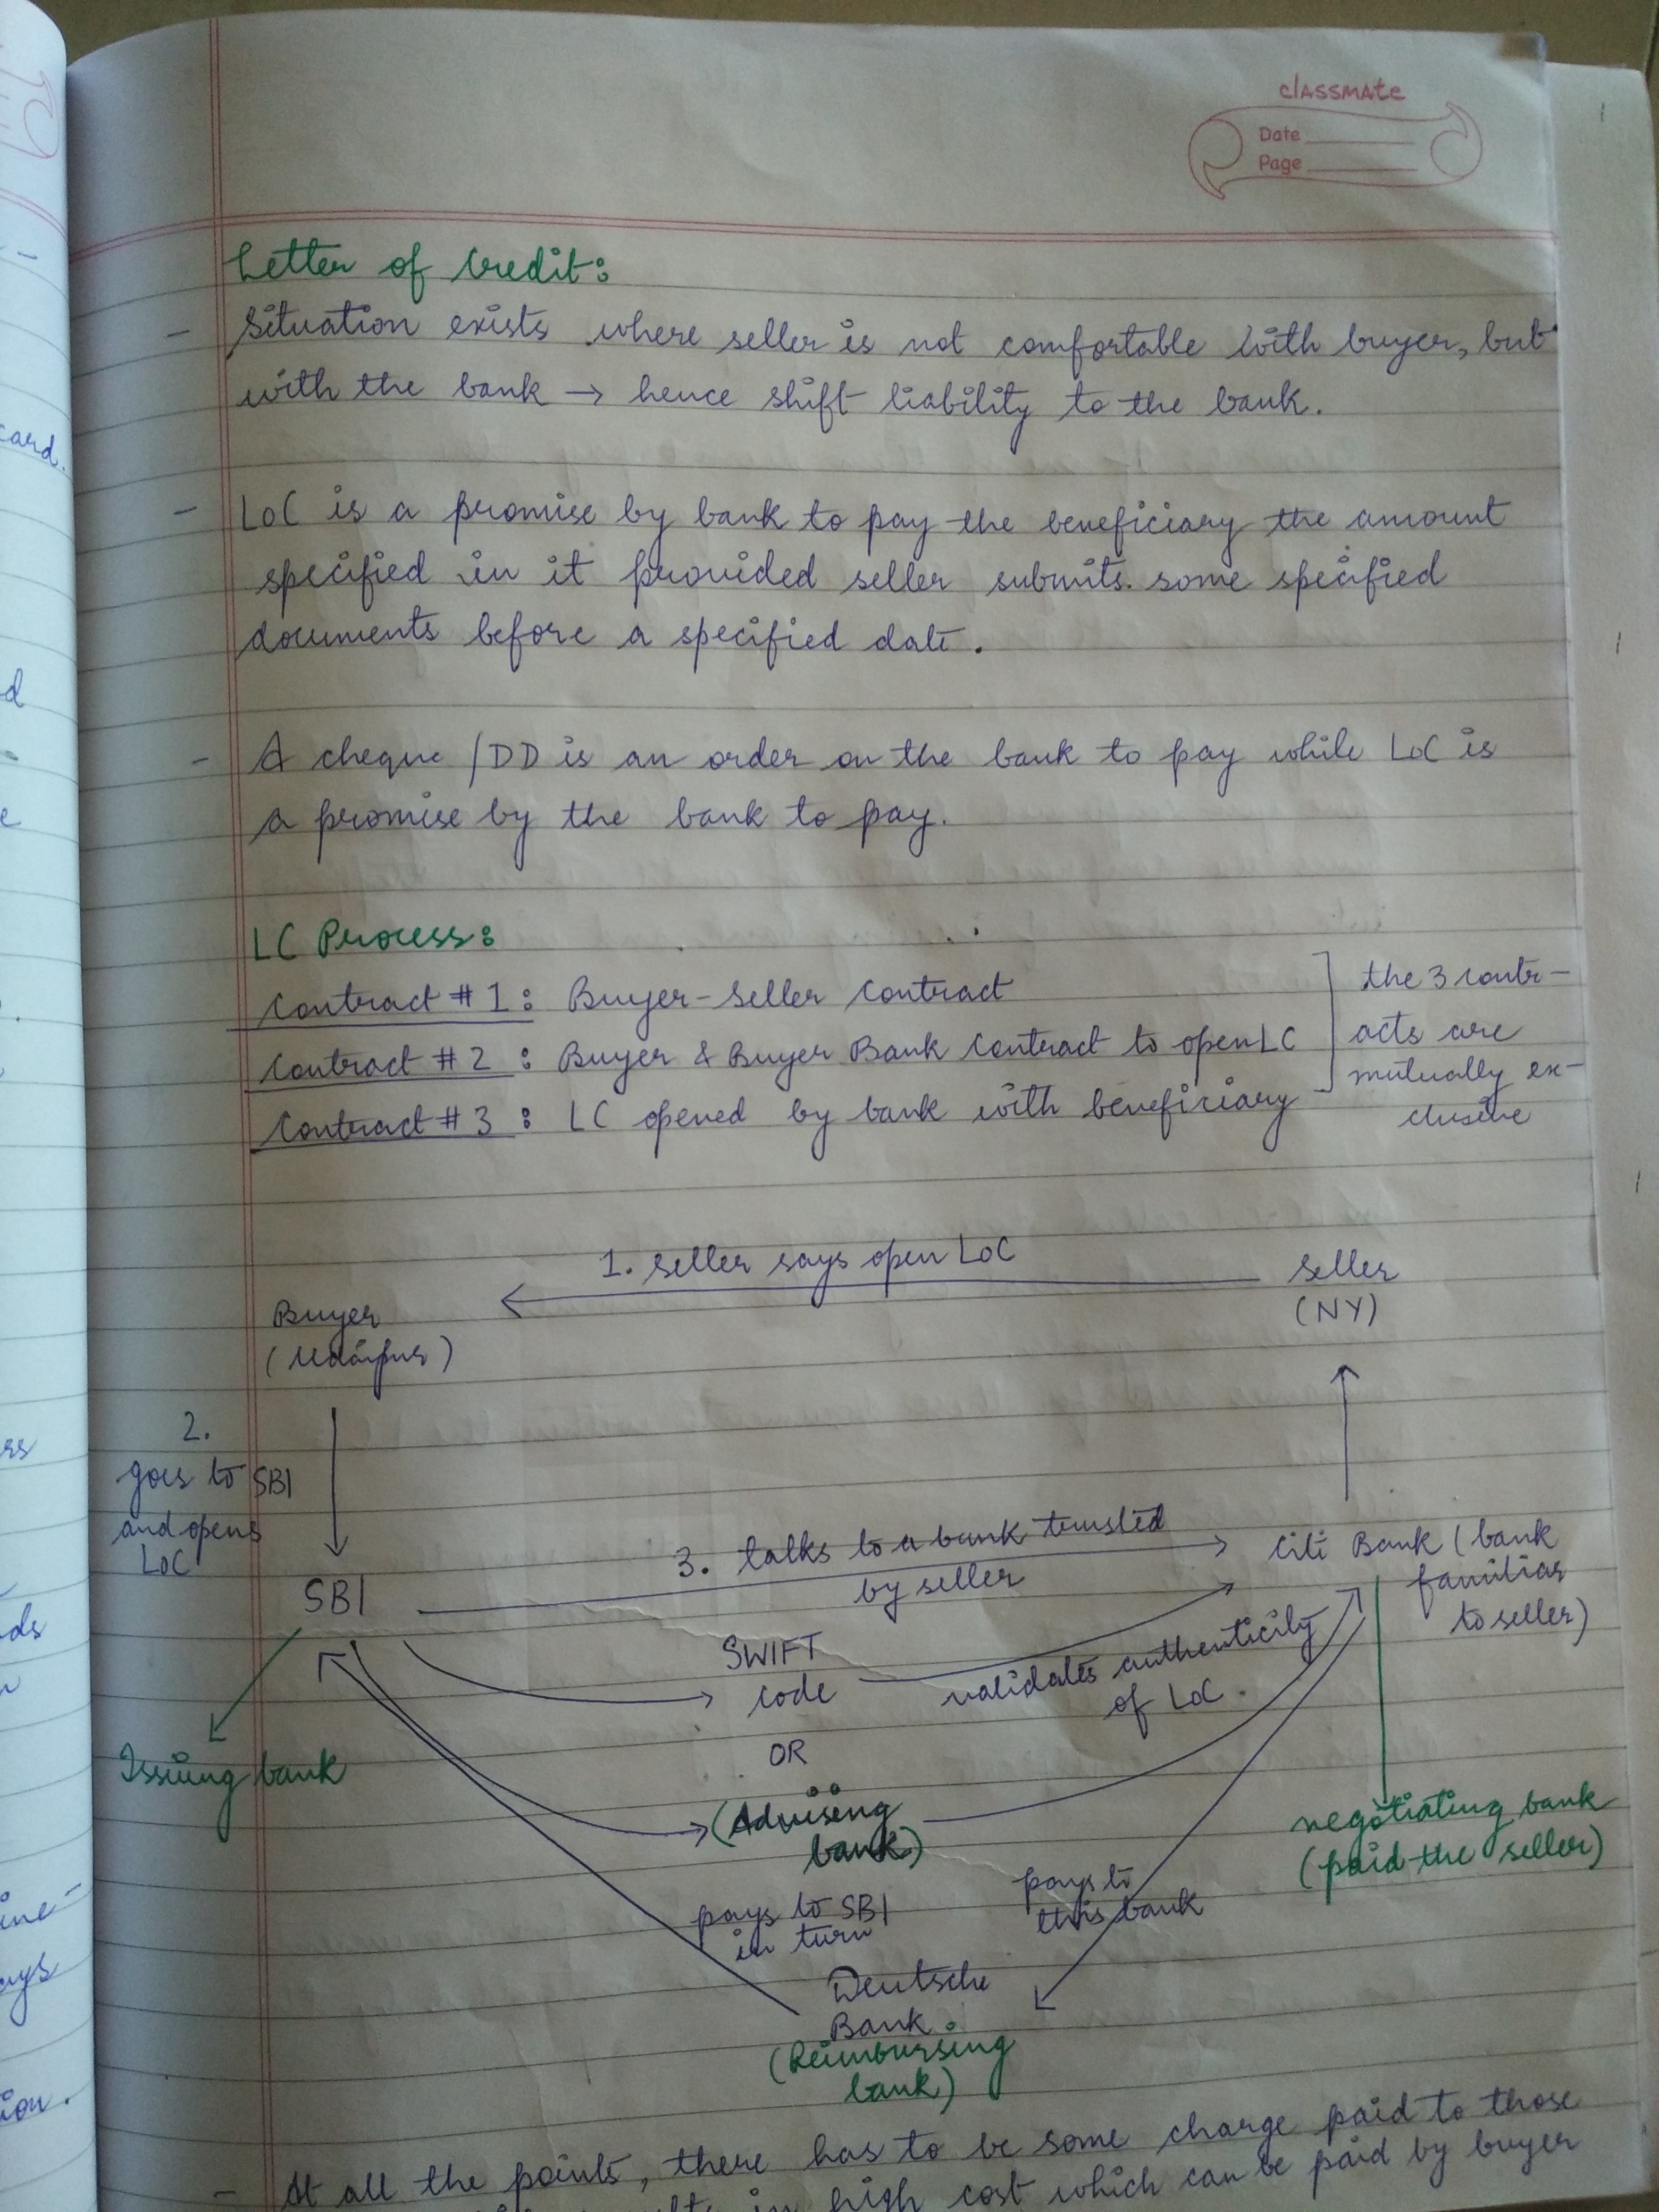 classmate
Date
Page
Letter of Credit:
- Situation exists where seller is not comfortable with buyer, but
with the bank → hence shift liability to the bank.
- LoC is a promise by bank to pay the beneficiary the amount
specified in it provided seller submits some specified
documents before a specified date.
- A cheque / DD is an order on the bank to pay while LoC is
a promise by the bank to pay.
LC Process:
Contract # 1 : Buyer-Seller Contract
Contract # 2 : Buyer & Buyer Bank Contract to open LC
Contract # 3 : LC opened by bank with beneficiary
the 3 contr-
acts are
mutually ex-
clusive
1. Seller says open LoC
Seller
(NY)
Buyer
(Udaipur)
2.
goes to SBI
and opens
LoC
3. talks to a bank trusted
by seller
Citi Bank (bank
familiar
to seller)
SBI
SWIFT
code
validates authenticity
of LoC.
OR
Issuing bank
(Advising
bank)
negotiating bank
(paid the seller)
pays to SBI
in turn
pays to
this bank
Deutsche
Bank
(Reimbursing
bank)
- At all the points, there has to be some charge paid to those
in high cost which can be paid by buyer
card.